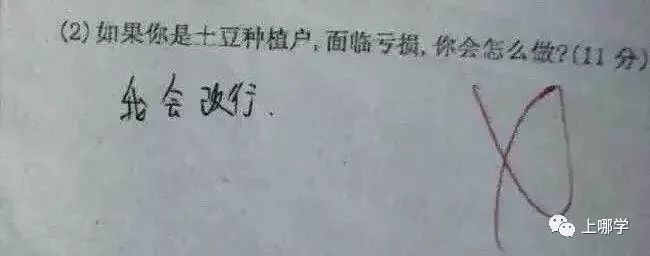 (2)如果你是土豆种植户,面临亏损,你会怎么做?(11分)
我会改行.
上哪学